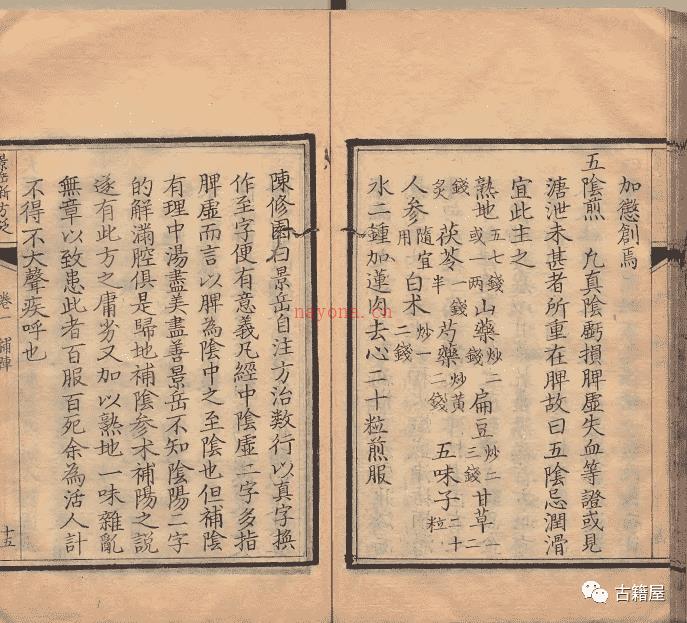 加懲創焉
五陰煎　凡真陰虧損脾虛失血等證或見
溏泄未甚者所重在脾故曰五陰忌潤滑
宜此主之
熟地五七錢或一兩山藥炒二錢扁豆炒二三錢甘草一二
錢炙茯苓一錢半芍藥炒黃二錢五味子二十粒
人參隨宜用白术炒一二錢
水二鍾加蓮肉去心二十粒煎服
陳修園曰景岳自注方治數行以真字換
作至字便有意義凡經中陰虛二字多指
脾虛而言以脾為陰中之至陰也但補陰
有理中湯盡美盡善景岳不知陰陽二字
的解滿腔俱是歸地補陰參术補陽之說
遂有此方之庸劣又加以熟地一味雜亂
無章以致患此者百服百死余為活人計
不得不大聲疾呼也
景岳新方砭
卷一　補陣
十五
nayona.cn
古籍屋